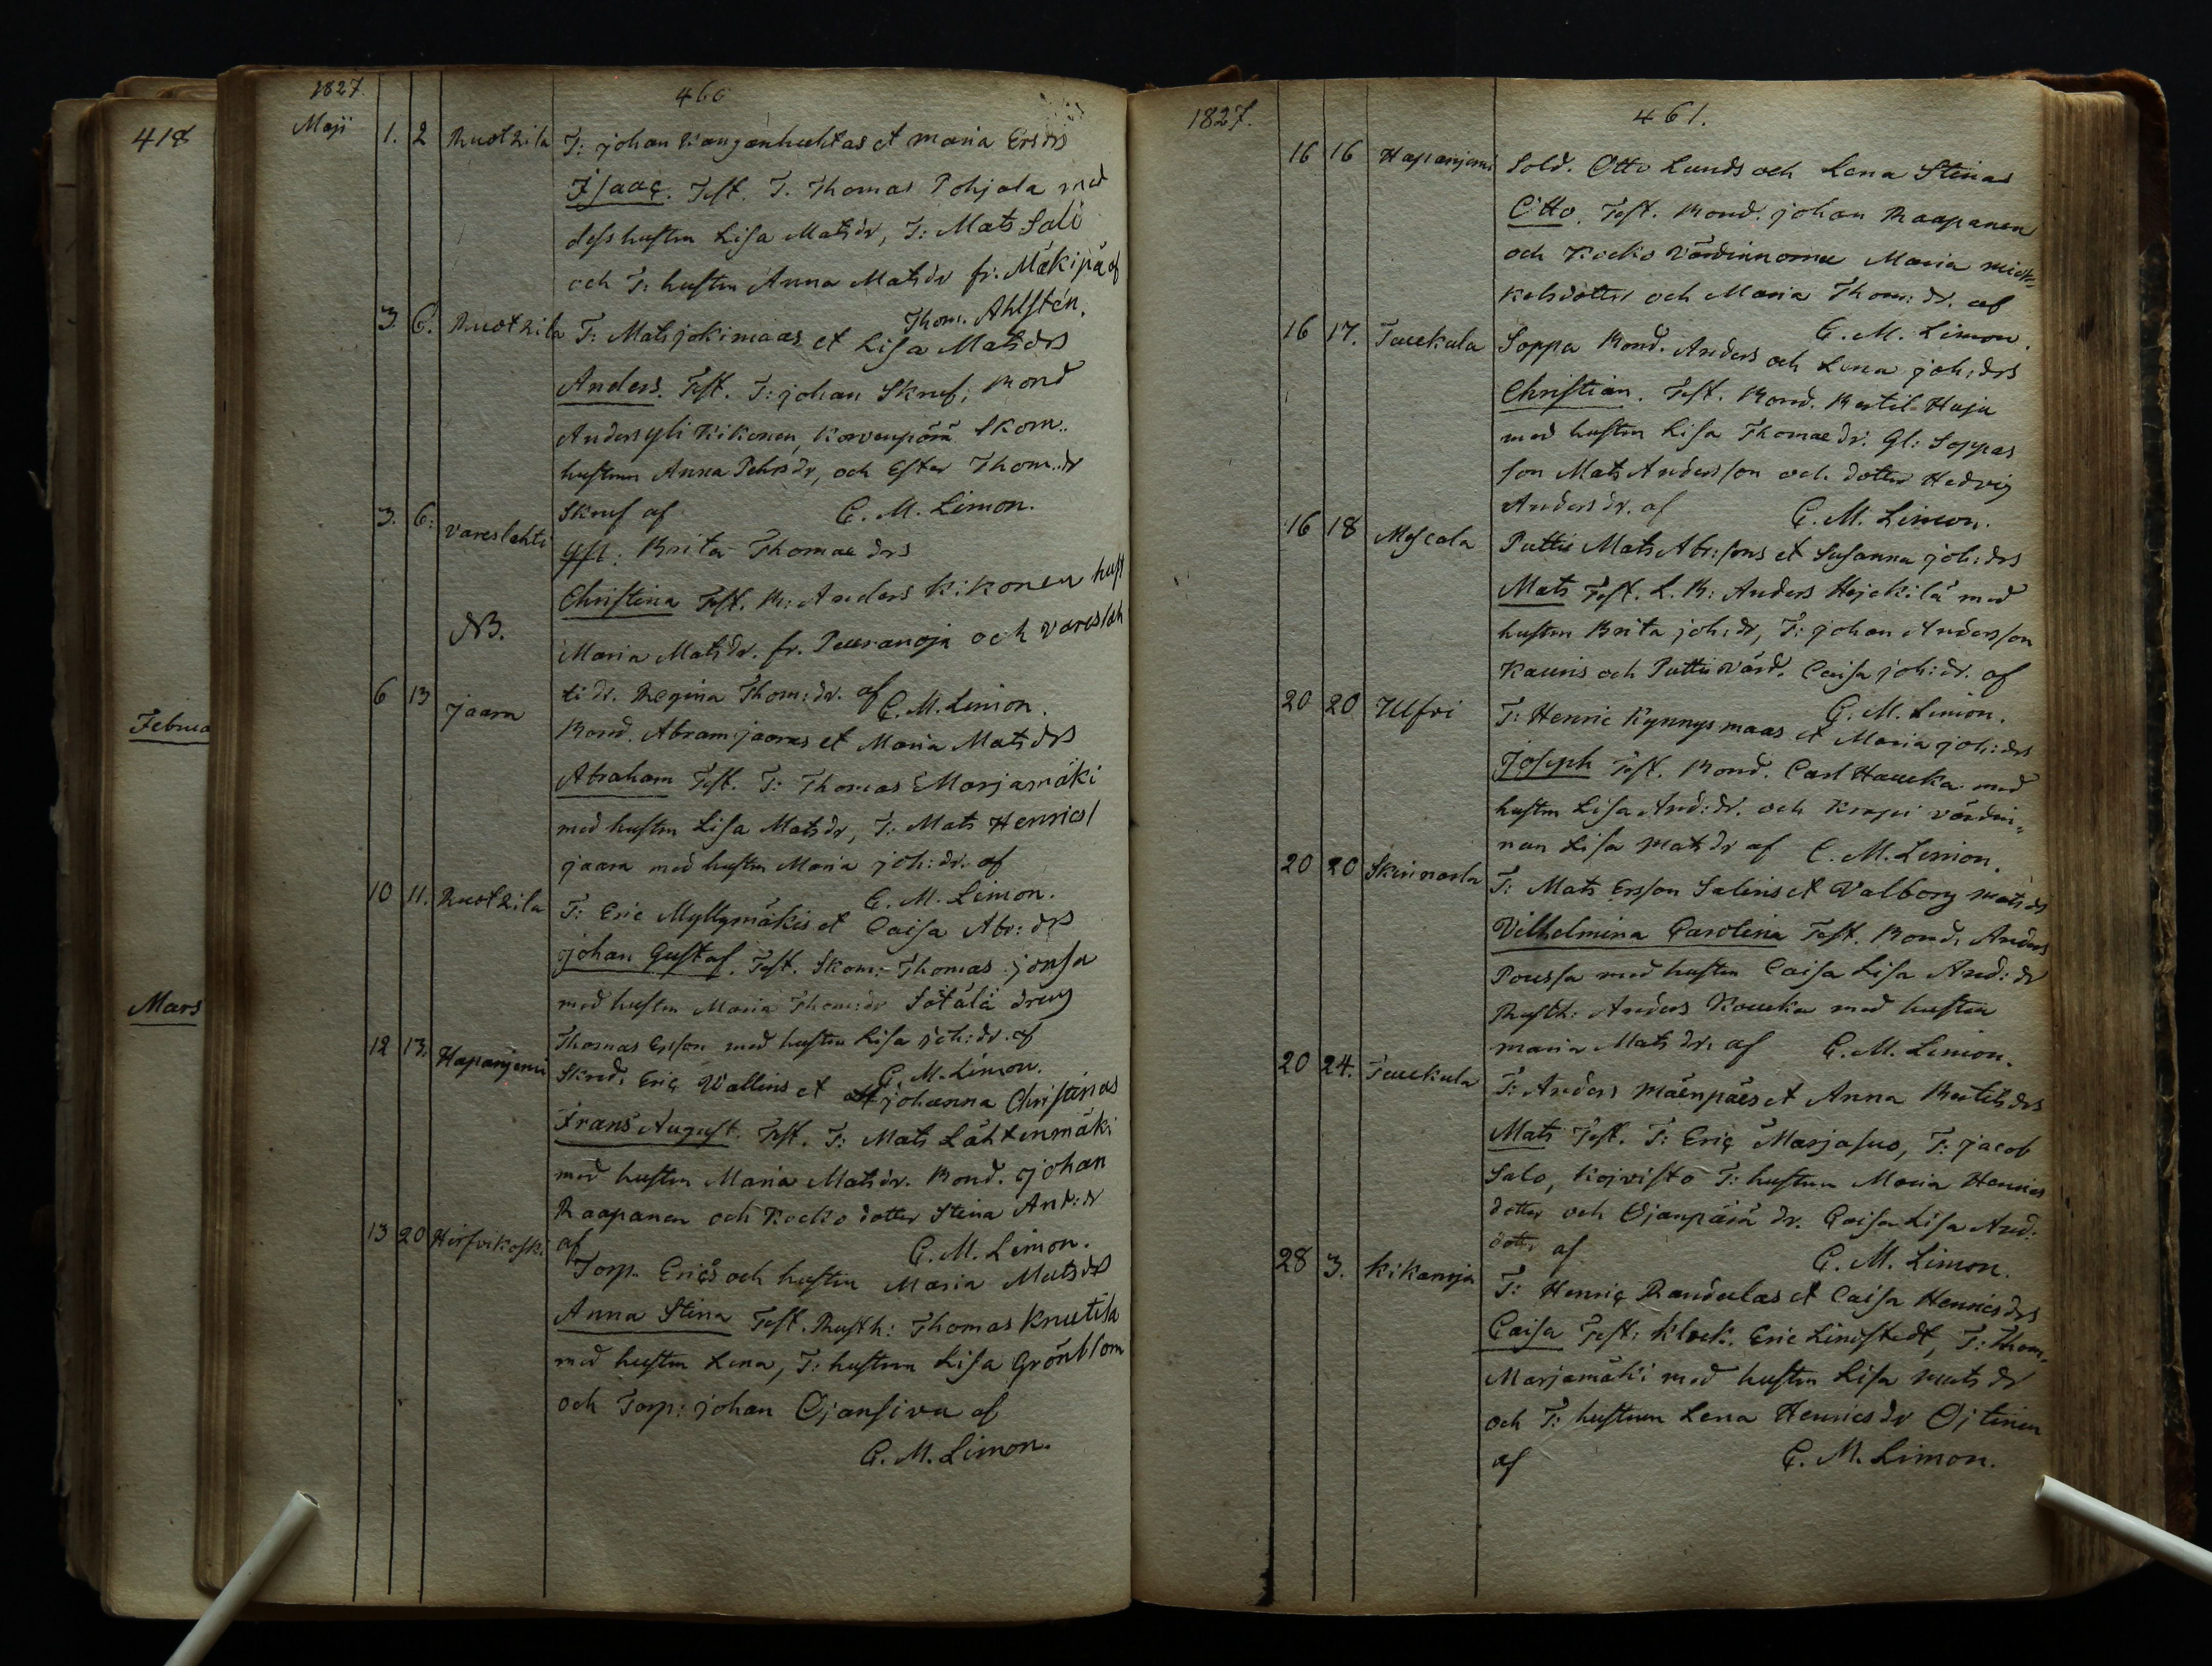 418
Februa
Mars
1827.
460
Maji 1. 2 Ruotzila T: Johan Kanganhuhtas et Maria Ersdrs
Isaac. Test. T. Thomas Pohjala med
dess hustru Lisa Matsdr, T: Mats Salo
och T: hustru Anna Matsdr fr. Mäkipä af
Thom. Ahlsten.
3. 6. Ruotzila T: Mats Jokimaas et Lisa Matsdrs
Anders. Test. T: Johan Skruf, Bond
Anders yli Kikonen, Korvenpää Skom..
hustrun Anna Pehrsdr, och Ester Thom:dr
Skruf af C. M. Limon.
3. 6: Vareslahti Qfl: Brita Thomae drs
Christina Test. B: Anders Kikonen hust
NB. Maria Matsdr. fr. Peuranoja och Vareslah
ti dr. Regina Thom:dr. af C. M. Limon.
6 13 Jaara Bond. Abram Jaaras et Maria Matsdrs
Abraham Test. T: Thomas Marjamäki
med hustru Lisa Matsdr, T: Mats Henrics/
Jaara med hustru Maria Joh:dr. af
C. M. Limon.
10 11. Ruotzila T: Eric Myllymäkis et Caisa Abr:drs
Johan Gustaf. Test. Skom: Thomas Jonsa
med hustru Maria Thom:dr Sötälä dreng
Thomas Ersson med hustru Lisa Joh:dr. af
C. M. Limon.
12 13. Hapanjemi Skred. Eric Wallins et Johanna Christinas
Frans August. Test. T: Mats Lähtenmäki
med hustru Maria Matsdr. Bond. Johan
Raapanen och Kocko dotter Stina And:dr
af C. M. Limon.
13 20 Hirfvikoski Torp. Erics och hustru Maria Matsdrs
Anna Stina Test. Rusth: Thomas Knutila
med hustru Lena, T: hustrun Lisa Grönblom
och Torp: Johan Ojansivu af
C. M. Limon.
1827.
461.
16 16 Hapanjemi Sold. Otto Lunds och Lena Stinas
Otto. Test. Bond. Johan Raapanen
och Kocko Värdinnorna Maria Mick
kelsdotter och Maria Thom: dr. af
C. M. Limon.
16 17. Tauekula Soppa Bond. Anders och Lena Joh:drs
Christian. Test. Bond. Bertil Huju
med hustru Lisa Thomae dr. Gl: Soppas
son Mats Andersson och dotter Hedvig
Andersdr. af C. M. Limon.
16 18 Mescala Puttis Mats Abr:sons et Susanna Joh:drs
Mats Test. L. B: Anders Hejckilä med
hustru Brita Joh:dr, T: Johan Andersson
Kaunis och Puttis värd. Caisa Joh:dr. af
C. M. Limon.
20 20 Ulfvi T: Henric Kynnysmaas et Maria Joh:drs
Joseph Test. Bond. Carl Haucka med
hustru Lisa And:dr. och Krapi värdin
nan Lisa Matsdr af C. M. Limon.
20 20 Skrinarla T: Mats Ersson Salins et Valborg Matsdrs
Vilhelmina Carolina Test. Bond. Anders
Poussa med hustru Caisa Lisa And:dr
Rusth: Anders Kaucka med hustru
Maria Matsdr. af C. M. Limon.
20 24. Tauekula T: Anders Mäenpäes et Anna Bertilsdrs
Mats Test. T: Eric Marjasuo, T: Jacob
Salo, Kojvisto T: hustrun Maria Henrics
dotter och Ojanpää dr. Caisa Lisa And.
dott. af C. M. Limon.
28 3. Kikanoja T: Henric Randulas et Caisa Henricsdrs
Caisa Test: Klock. Eric Lindstedt, T: Thom.
Marjamäki med hustru Lisa Mats dr
och T: hustrun Lena Henricsdr Ojtinen
af C. M. Limon.